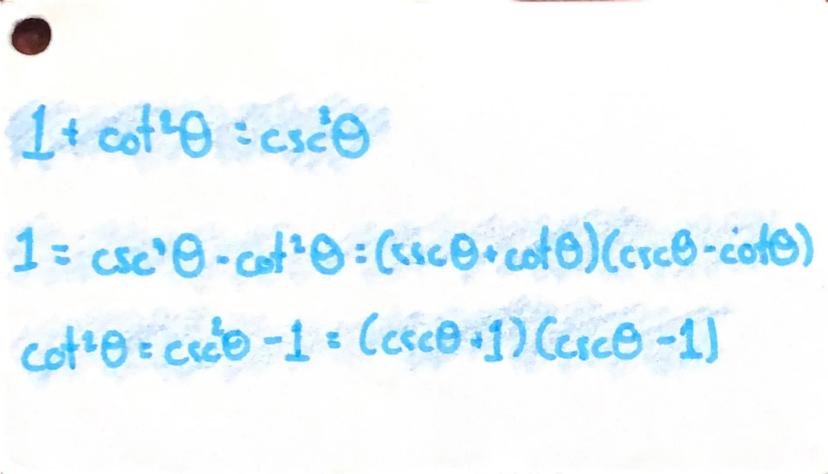 1 + cot²θ = csc²θ
1 = csc²θ - cot²θ = (cscθ + cotθ)(cscθ - cotθ)
cot²θ = csc²θ - 1 = (cscθ + 1)(cscθ - 1)